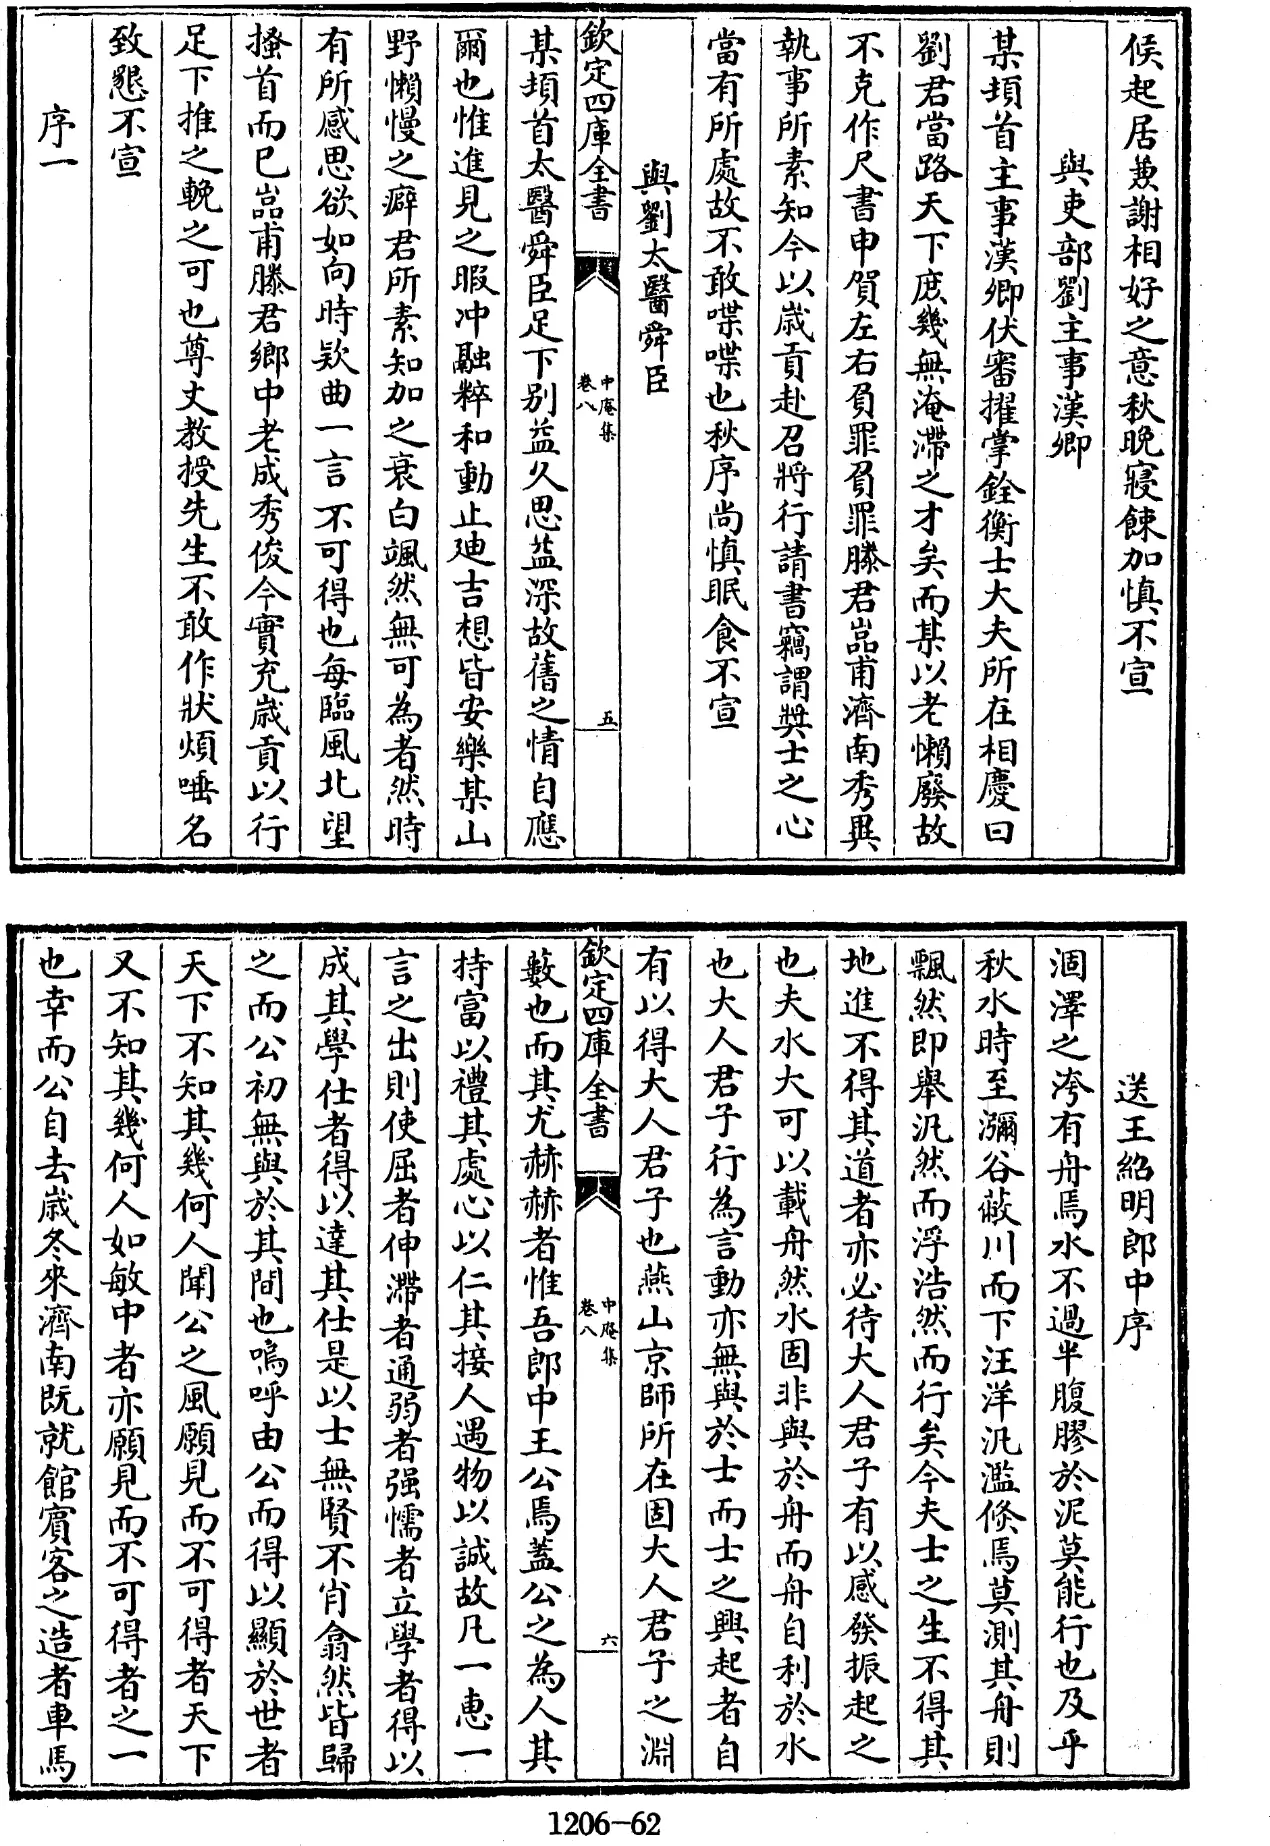 候起居兼謝相好之意秋晚寢餗加慎不宣
與吏部劉主事漢卿
某頓首主事漢卿伏審擢掌銓衡士大夫所在相慶曰
劉君當路天下庶幾無淹滯之才矣而某以老懶廢故
不克作尺書申賀左右負罪負罪滕君嵓甫濟南秀異
執事所素知今以歲貢赴召將行請書竊謂奬士之心
當有所處故不敢喋喋也秋序尚慎眠食不宣
與劉太醫舜臣
欽定四庫全書
中庵集
卷八
五
某頓首太醫舜臣足下别益久思益深故舊之情自應
爾也惟進見之暇冲融粹和動止迪吉想皆安樂某山
野懶慢之癖君所素知加之衰白颯然無可為者然時
有所感思欲如向時欵曲一言不可得也每臨風北望
搔首而已嵓甫滕君鄉中老成秀俊今實充歲貢以行
足下推之輓之可也尊丈教授先生不敢作狀煩唾名
致懇不宣
序一
送王紹明郎中序
涸澤之涔有舟焉水不過半腹膠於泥莫能行也及乎
秋水時至瀰谷蔽川而下汪洋汎濫倏焉莫測其舟則
飄然即舉汎然而浮浩然而行矣今夫士之生不得其
地進不得其道者亦必待大人君子有以感發振起之
也夫水大可以載舟然水固非與於舟而舟自利於水
也大人君子行為言動亦無與於士而士之興起者自
有以得大人君子也燕山京師所在固大人君子之淵
欽定四庫全書
中庵集
卷八
六
藪也而其尤赫赫者惟吾郎中王公焉蓋公之為人其
持富以禮其處心以仁其接人遇物以誠故凡一惠一
言之出則使屈者伸滯者通弱者强懦者立學者得以
成其學仕者得以達其仕是以士無賢不肖翕然皆歸
之而公初無與於其間也嗚呼由公而得以顯於世者
天下不知其幾何人聞公之風願見而不可得者天下
又不知其幾何人如敏中者亦願見而不可得者之一
也幸而公自去歲冬來濟南既就館賓客之造者車馬
1206-62